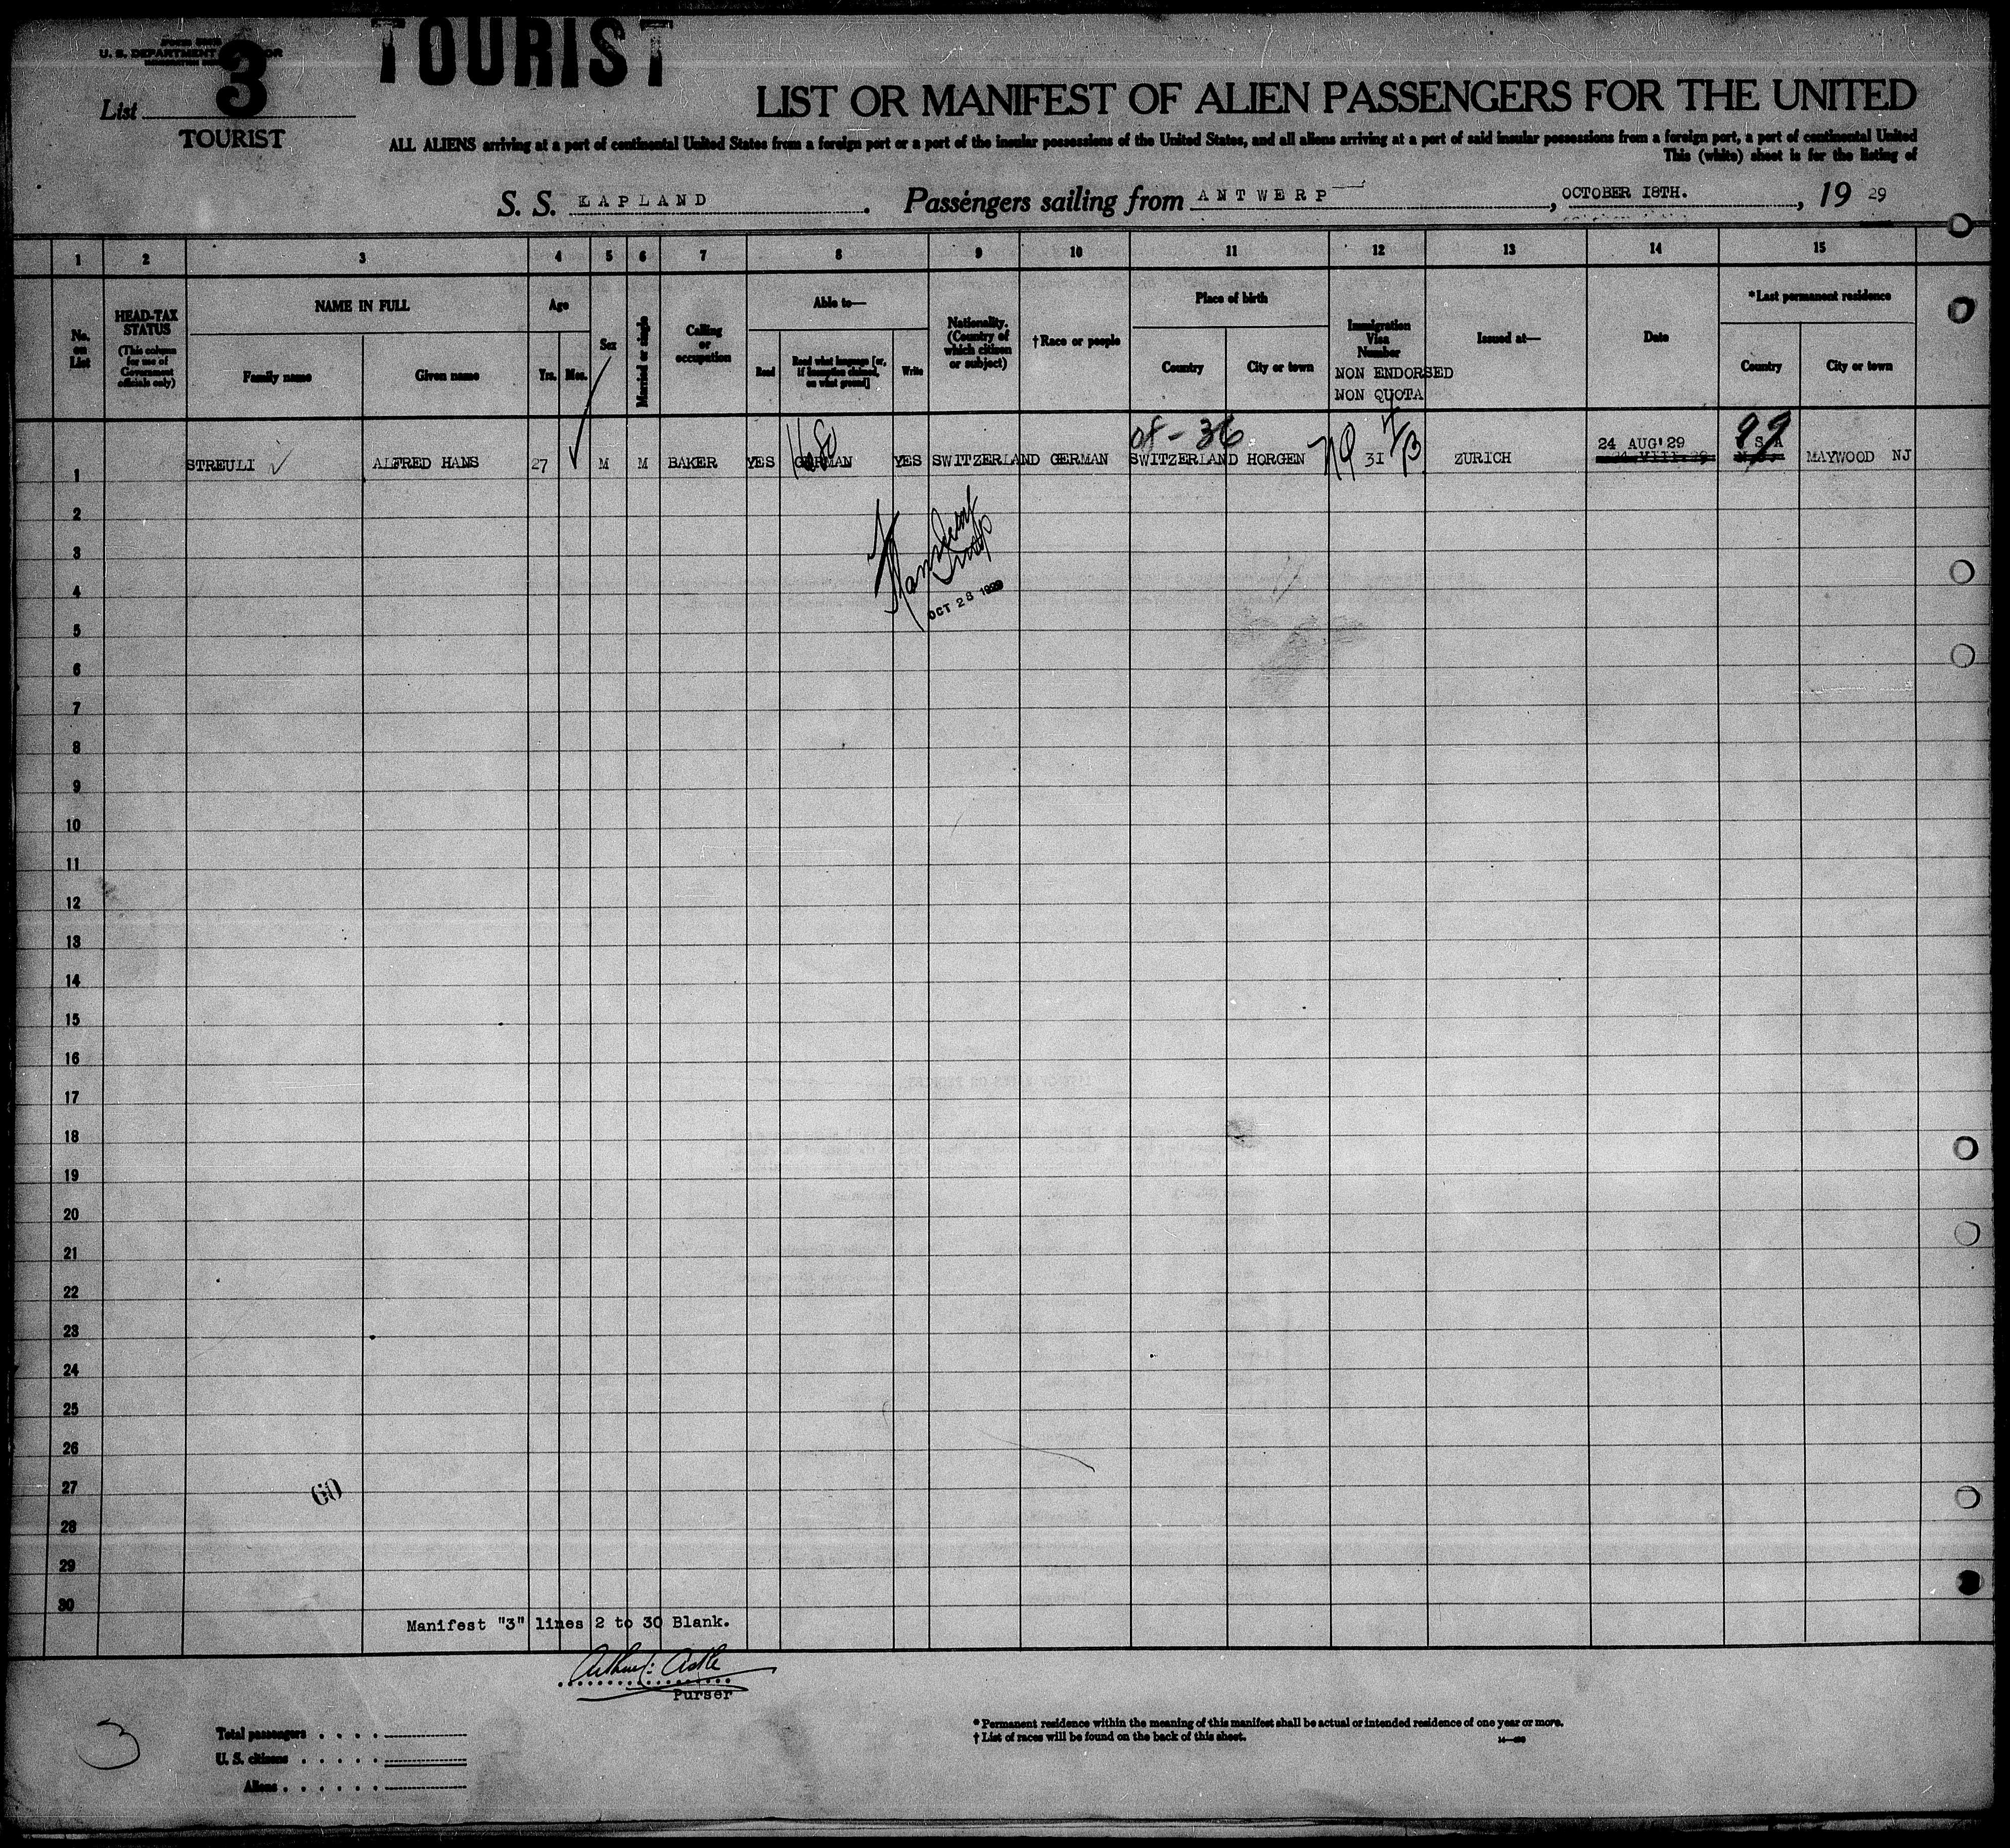 TOURIST
U. S. DEPARTMENT OF LABOR
List 3
TOURIST
LIST OR MANIFEST OF ALIEN PASSENGERS FOR THE UNITED
ALL ALIENS arriving at a port of continental United States from a foreign port or a port of the insular possessions of the United States, and all aliens arriving at a port of said insular possessions from a foreign port, a port of continental United
This (white) sheet is for the listing of
S. S. KAPLAND. Passengers sailing from ANTWERP, OCTOBER 18TH., 19 29
1 2 3 4 5 6 7 8 9 10 11 12 13 14 15
No. on List
HEAD-TAX STATUS
(This column for use of Government officials only)
NAME IN FULL
Family name
Given name
Age
Yrs.
Mos.
Sex
Married or single
Calling or occupation
Able to—
Read
Read what language [or, if exemption claimed, on what ground]
Write
Nationality. (Country of which citizen or subject)
†Race or people
Place of birth
Country
City or town
Immigration Visa Number
NON ENDORSED
NON QUOTA
Issued at—
Date
*Last permanent residence
Country
City or town
08-36
99
24 AUG' 29
U S A
1 STREULI ALFRED HANS 27 M M BAKER YES GERMAN YES SWITZERLAND GERMAN SWITZERLAND HORGEN NQ 31 ZURICH 24 VIII. 29 MAYWOOD NJ
2
3
4
OCT 28 1929
5
6
7
8
9
10
11
12
13
14
15
16
17
18
19
20
21
22
23
24
25
26
27
60
28
29
30
Manifest "3" lines 2 to 30 Blank.
Purser
3
Total passengers
U. S. citizens
Aliens
* Permanent residence within the meaning of this manifest shall be actual or intended residence of one year or more.
† List of races will be found on the back of this sheet.